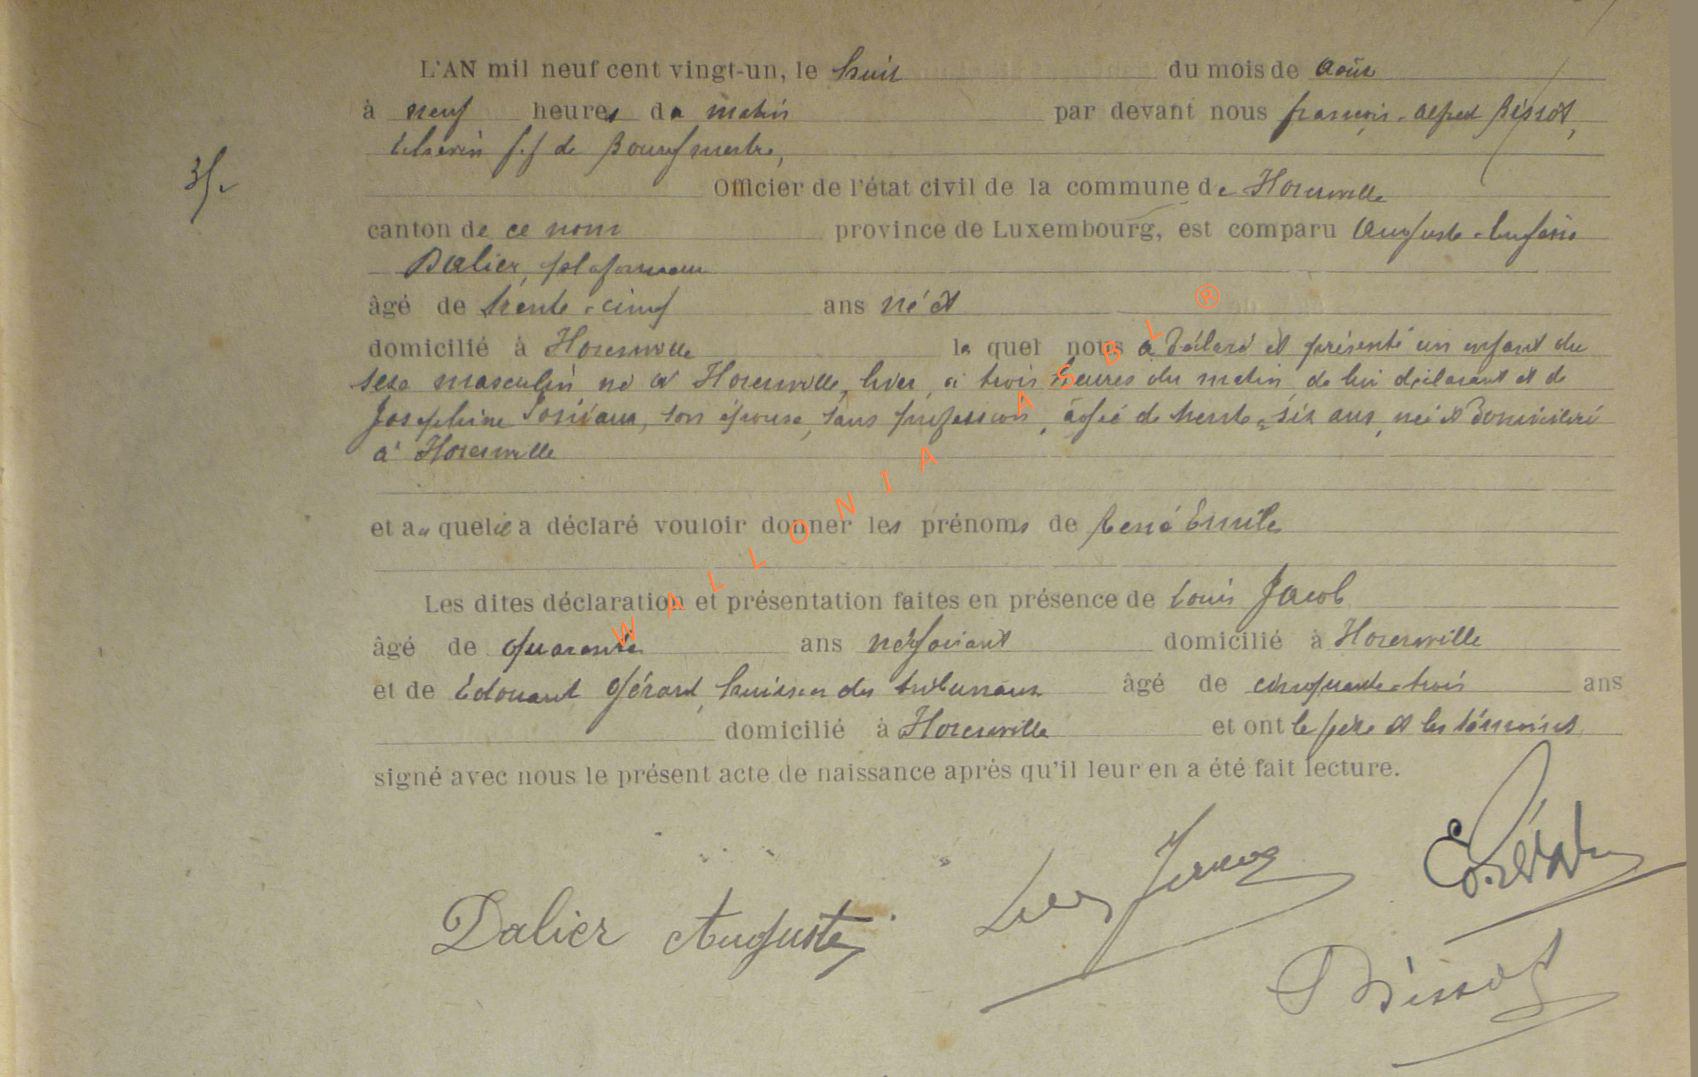 L'AN mil neuf cent vingt-un, le huit du mois de août
à neuf heures du matin par devant nous françois-alfred Bissot,
Echevin f.f de Bourgmestre,
35.
Officier de l'état civil de la commune de
canton de ce nom province de Luxembourg, est comparu Auguste-Eugène
Dalier, plafonneur
âgé de trente-cinq ans né et
domicilié à lequel nous a déclaré et présenté un enfant du
sexe masculin né à hier, à trois heures du matin, de lui déclarant et de
Joséphine son épouse, sans profession, âgée de trente-six ans, née et domiciliée
à
et auquel il a déclaré vouloir donner les prénoms de René Emile
Les dites déclaration et présentation faites en présence de Louis Jacob
âgé de quarante ans négociant domicilié à
et de Edouard Gérard, huissier des tribunaux âgé de cinquante-trois ans
domicilié à et ont le père et les témoins
signé avec nous le présent acte de naissance après qu'il leur en a été fait lecture.
WALLONIA ASBL ®
Dalier Auguste
Bissot